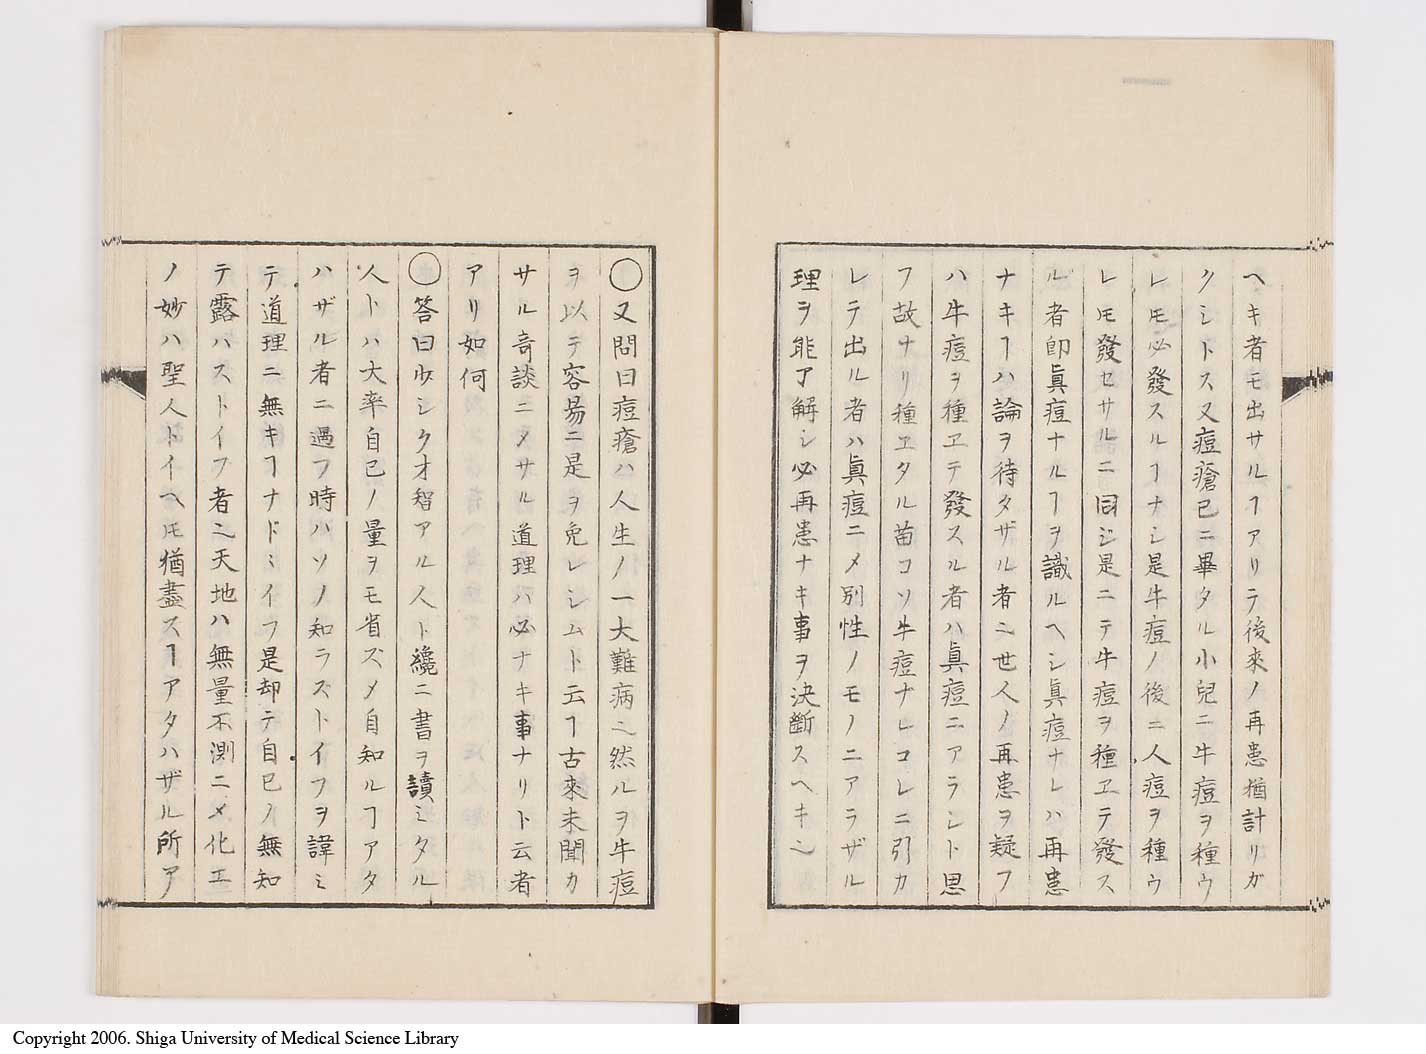 ヘキ者モ出サルヿアリテ後來ノ再患猶計リガ
クシトス又痘瘡已ニ畢タル小兒ニ牛痘ヲ種ウ
レ𪜈必發スルヿナシ是牛痘ノ後ニ人痘ヲ種ウ
レ𪜈發セサルニ同ジ是ニテ牛痘ヲ種ヱテ發ス
ル者卽眞痘ナルヿヲ識ルヘシ眞痘ナレハ再患
ナキヿハ論ヲ待タザル者ニ世人ノ再患ヲ疑フ
ハ牛痘ヲ種ヱテ發スル者ハ眞痘ニアラシト思
フ故ナリ種ヱタル苗コソ牛痘ナレコレニ引カ
レテ出ル者ハ眞痘ニ〆別性ノモノニアラザル
理ヲ能了解シ必再患ナキ事ヲ決斷スヘキ乄
○又問曰痘瘡ハ人生ノ一大難病乄然ルヲ牛痘
ヲ以テ容易ニ是ヲ免レシムト云ヿ古來未聞カ
サル奇談ニ〆サル道理ハ必ナキ事ナリト云者
アリ如何
○答曰少シク才智アル人ト纔ニ書ヲ讀ミタル
人トハ大率自己ノ量ヲモ省ズ〆自知ルヿアタ
ハザル者ニ遇フ時ハソノ知ラズトイフヲ諱ミ
テ道理ニ無キヿナドミイフ是却テ自己ノ無知
テ露ハストイフ者乄天地ハ無量不測ニ〆化工
ノ妙ハ聖人トイヘ𪜈猶盡スヿアタハザル所ア
Copyright 2006. Shiga University of Medical Science Library